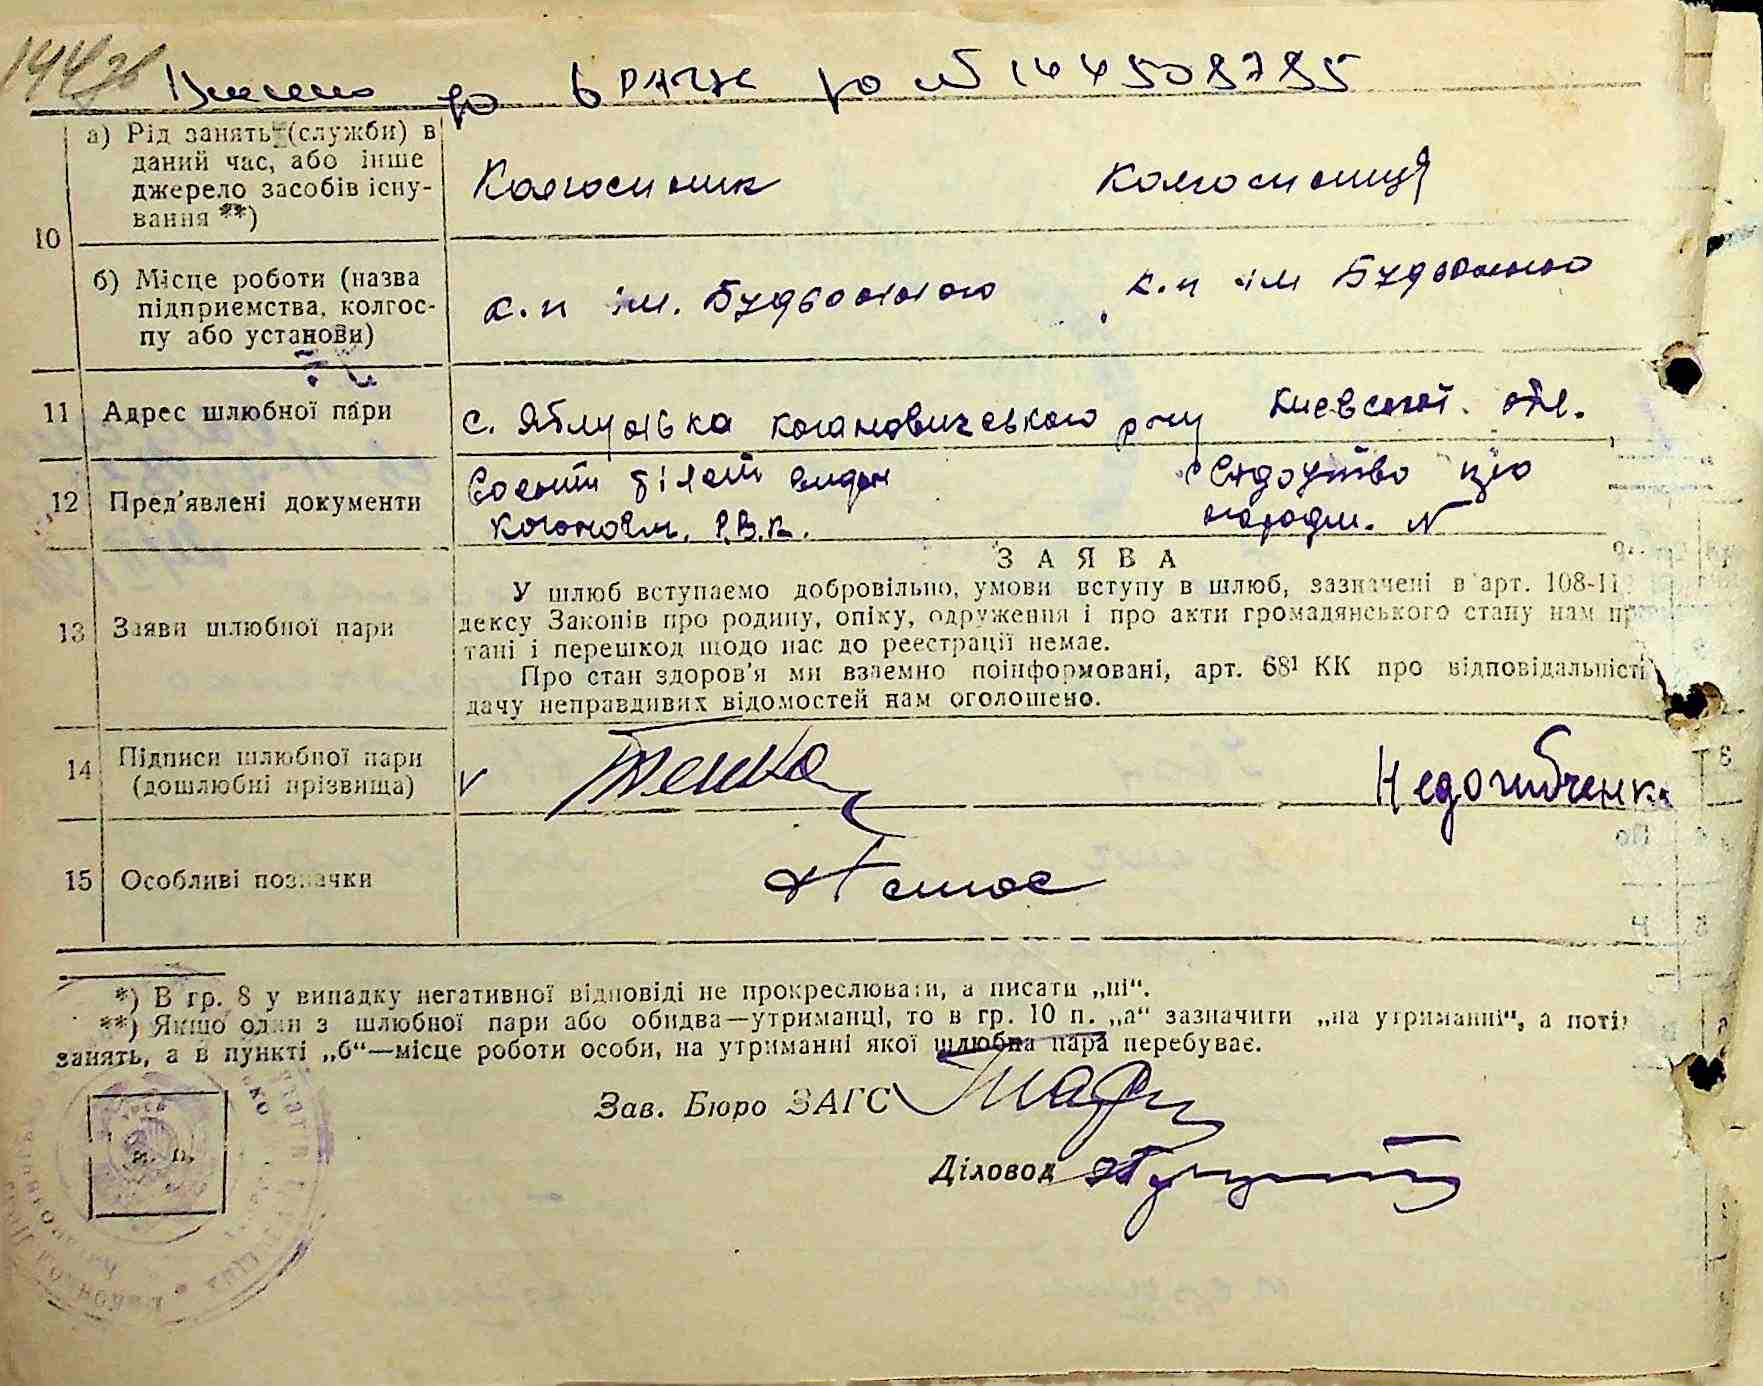 144
Внесено до ДРАЦС за № 144508785
а) Рід занять (служби) в
даний час, або інше
джерело засобів існу-
вання **)
Колгоспник Колгоспниця
10
б) Місце роботи (назва
підприємства, колгос-
пу або установи)
к.п ім. Будьонного к.п ім Будьонного
11 Адрес шлюбної пари
с. Яблунька Кагановичського р-ну Києвської обл.
12 Пред'явлені документи
Воєнний білет видан свідоцтво про
Каганович. Р.В.К. народж. N
13 Заяви шлюбної пари
ЗАЯВА
У шлюб вступаємо добровільно, умови вступу в шлюб, зазначені в арт. 108-11
дексу Законів про родину, опіку, одруження і про акти громадянського стану нам
тані і перешкод щодо нас до реєстрації немає.
Про стан здоров'я ми взаємно поінформовані, арт. 68¹ КК про відповідальність
дачу неправдивих відомостей нам оголошено.
14 Підписи шлюбної пари
(дошлюбні прізвища)
v Недогибченко
15 Особливі позначки
Немає
*) В гр. 8 у випадку негативної відповіді не прокреслювати, а писати „ні“.
**) Якщо один з шлюбної пари або обидва—утриманці, то в гр. 10 п. „а“ зазначити „на утриманні“, а поті
занять, а в пункті „б“—місце роботи особи, на утриманні якої шлюбна пара перебуває.
Зав. Бюро ЗАГС
Діловод
м. п.